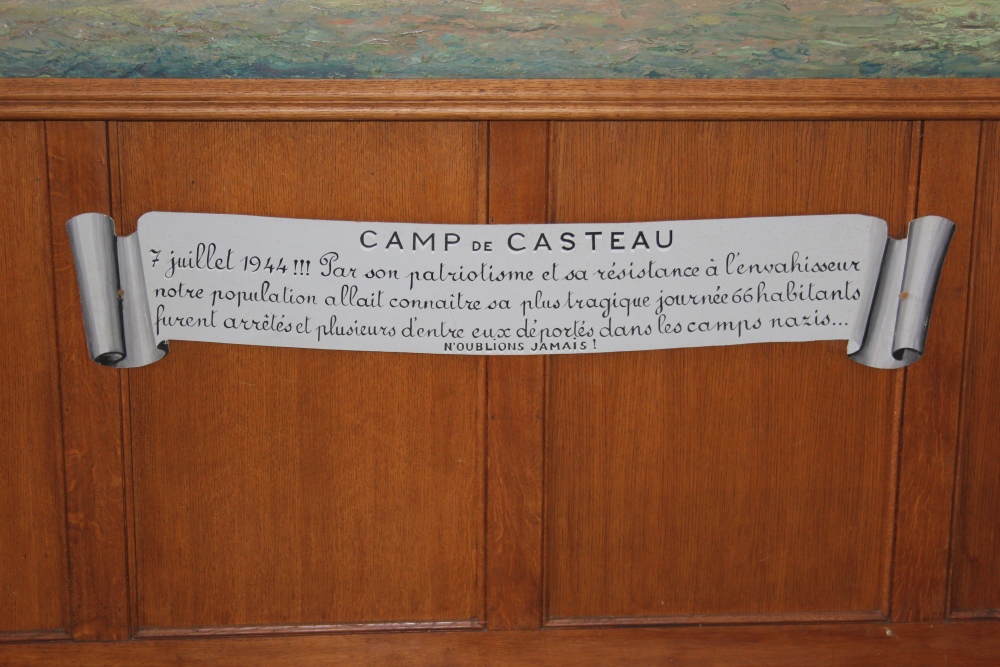 CAMP DE CASTEAU
7 juillet 1944!!! Par son patriotisme et sa résistance à l'envahisseur
notre population allait connaitre sa plus tragique journée 66 habitants
furent arrêtés et plusieurs d'entre eux déportés dans les camps nazis...
N'OUBLIONS JAMAIS!